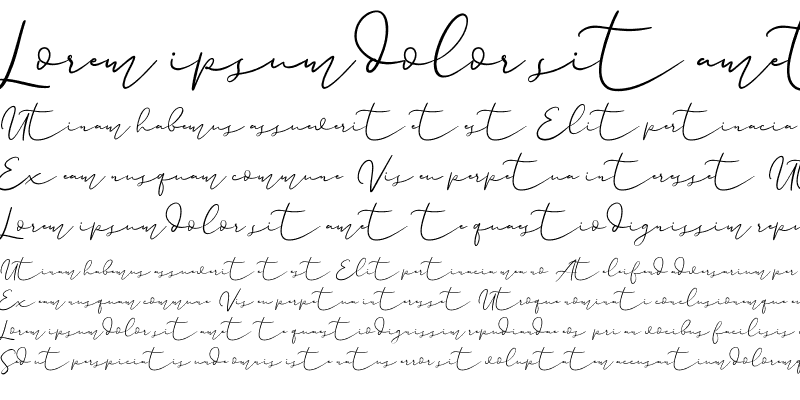 Lorem ipsum dolor sit amet
Ut inam habemus assueverit et est Elit pertinacia
Ex eam nusquam commune Vis eu perpetua interesset Ut
Lorem ipsum dolor sit amet te quaestio dignissim repu
Ut inam habemus assueverit et est Elit pertinacia mea no At eleifend adversarium per
Ex eam nusquam commune Vis eu perpetua interesset Utroque nominati conclusionemque
Lorem ipsum dolor sit amet te quaestio dignissim repudiandae eos pri an vocibus facilisis
Sed ut perspiciatis unde omnis iste natus error sit voluptatem accusantium doloremq